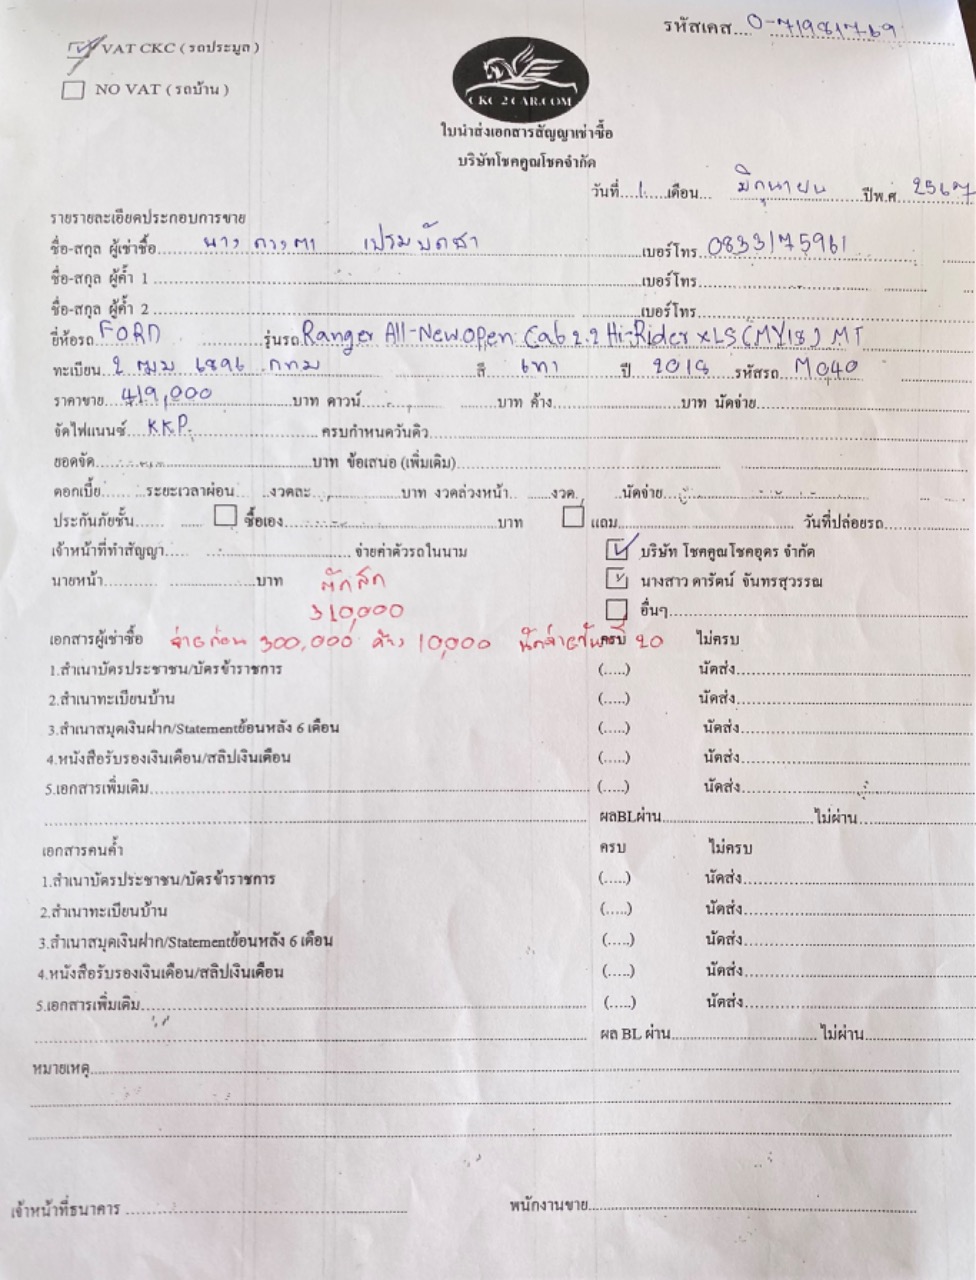 รหัสเคส....0-71981769
VAT CKC ( รถประมูล )
NO VAT ( รถบ้าน )
CKC 2 CAR.COM
ใบนำส่งเอกสารสัญญาเช่าซื้อ
บริษัทโชคคูณโชคจำกัด
วันที่....1.....เดือน... มิถุนายน ปีพ.ศ 2567
รายรายละเอียดประกอบการขาย
ชื่อ-สกุล ผู้เช่าซื้อ..... นาง ดวงตา เปรมปัดชา ....เบอร์โทร. 0833175961
ชื่อ-สกุล ผู้ค้ำ 1 ..........เบอร์โทร...
ชื่อ-สกุล ผู้ค้ำ 2 ..........เบอร์โทร...
ยี่ห้อรถ FORD ....รุ่นรถ Ranger All-New Open Cab 2.2 Hi-Rider XLS (MY18) MT
ทะเบียน 2 ฒฆ 6896 กทม สี เทา ปี 2018 รหัสรถ M040
ราคาขาย 419,000 บาท ดาวน์..........บาท ค้าง..........บาท นัดจ่าย..........
จัดไฟแนนซ์ K.K.P. ....ครบกำหนดวันคิว..........
ยอดจัด..........บาท ข้อเสนอ (เพิ่มเติม)..........
ดอกเบี้ย......ระยะเวลาผ่อน .....งวดละ..........บาท งวดล่วงหน้า.. ......งวด. ..นัดจ่าย..........
ประกันภัยชั้น...... ซื้อเอง..........บาท แถม..........วันที่ปล่อยรถ..........
เจ้าหน้าที่ทำสัญญา..........จ่ายค่าตัวรถในนาม บริษัท โชคคูณโชคอุดร จำกัด
นายหน้า..........บาท นางสาว ดารัตน์ จันทรสุวรรณ
310,000 อื่นๆ..........
เอกสารผู้เช่าซื้อ จ่ายก่อน 300,000 ค้าง 10,000 นัดจ่ายวันที่ 20 ครบ ไม่ครบ
1.สำเนาบัตรประชาชน/บัตรข้าราชการ (.....) นัดส่ง..........
2.สำเนาทะเบียนบ้าน (.....) นัดส่ง..........
3.สำเนาสมุดเงินฝาก/Statementย้อนหลัง 6 เดือน (.....) นัดส่ง..........
4.หนังสือรับรองเงินเดือน/สลิปเงินเดือน (.....) นัดส่ง..........
5.เอกสารเพิ่มเติม.......... (.....) นัดส่ง..........
ผลBLผ่าน..........ไม่ผ่าน..........
เอกสารคนค้ำ ครบ ไม่ครบ
1.สำเนาบัตรประชาชน/บัตรข้าราชการ (.....) นัดส่ง..........
2.สำเนาทะเบียนบ้าน (.....) นัดส่ง..........
3.สำเนาสมุดเงินฝาก/Statementย้อนหลัง 6 เดือน (.....) นัดส่ง..........
4.หนังสือรับรองเงินเดือน/สลิปเงินเดือน (.....) นัดส่ง..........
5.เอกสารเพิ่มเติม.......... (.....) นัดส่ง..........
ผล BL ผ่าน..........ไม่ผ่าน..........
หมายเหตุ..........
เจ้าหน้าที่ธนาคาร .......... พนักงานขาย..........